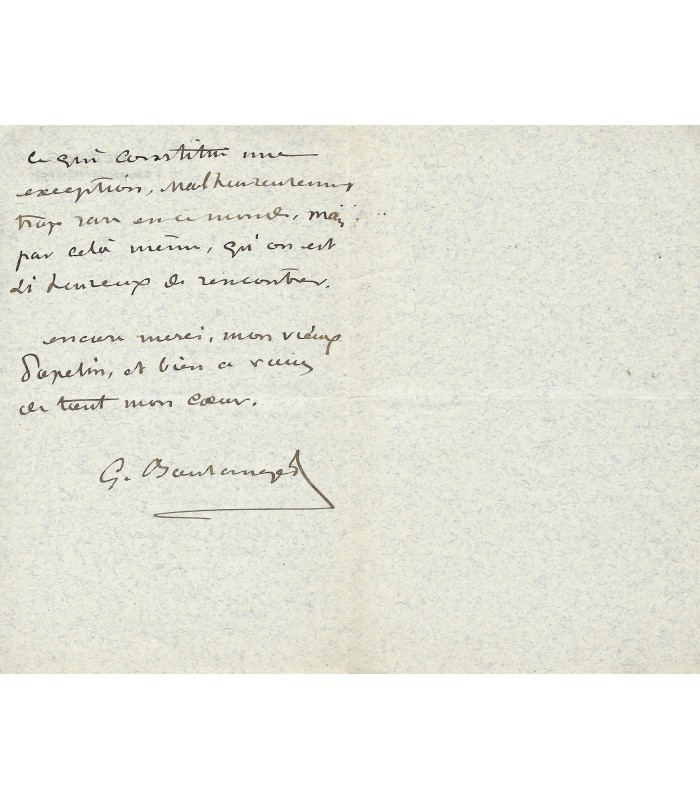 ce qui constitue une
exception, malheureusement
trop rare en ce monde, mais
par celà même, qu'on est
si heureux de rencontrer.
encore merci, mon vieux
et bien à vous
de tout mon cœur.
G.